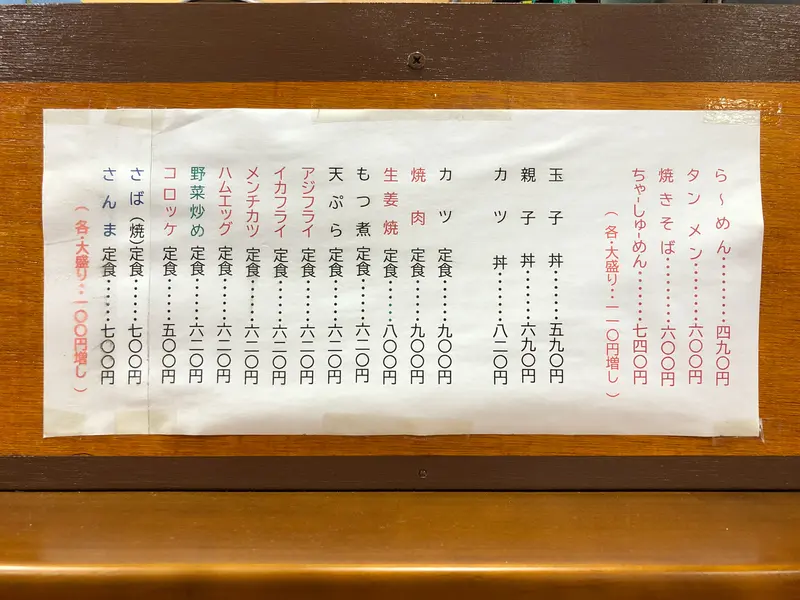 ら～めん・・・・・・・四九〇円
タンメン・・・・・・六〇〇円
焼きそば・・・・・・六〇〇円
ちゃーしゅーめん・・・・・・七四〇円
（各・大盛り・・一一〇円増し）
玉子丼・・・・・・五九〇円
親子丼・・・・・・六九〇円
カツ丼・・・・・・八二〇円
カツ定食・・・・・・九〇〇円
焼肉定食・・・・・・九〇〇円
生姜焼定食・・・・・・八〇〇円
もつ煮定食・・・・・・六二〇円
天ぷら定食・・・・・・六二〇円
アジフライ定食・・・・・・六二〇円
イカフライ定食・・・・・・六二〇円
メンチカツ定食・・・・・・六二〇円
ハムエッグ定食・・・・・・六二〇円
野菜炒め定食・・・・・・六二〇円
コロッケ定食・・・・・・五〇〇円
さば(焼)定食・・・・・・七〇〇円
さんま定食・・・・・・七〇〇円
（各・大盛り・・一〇〇円増し）